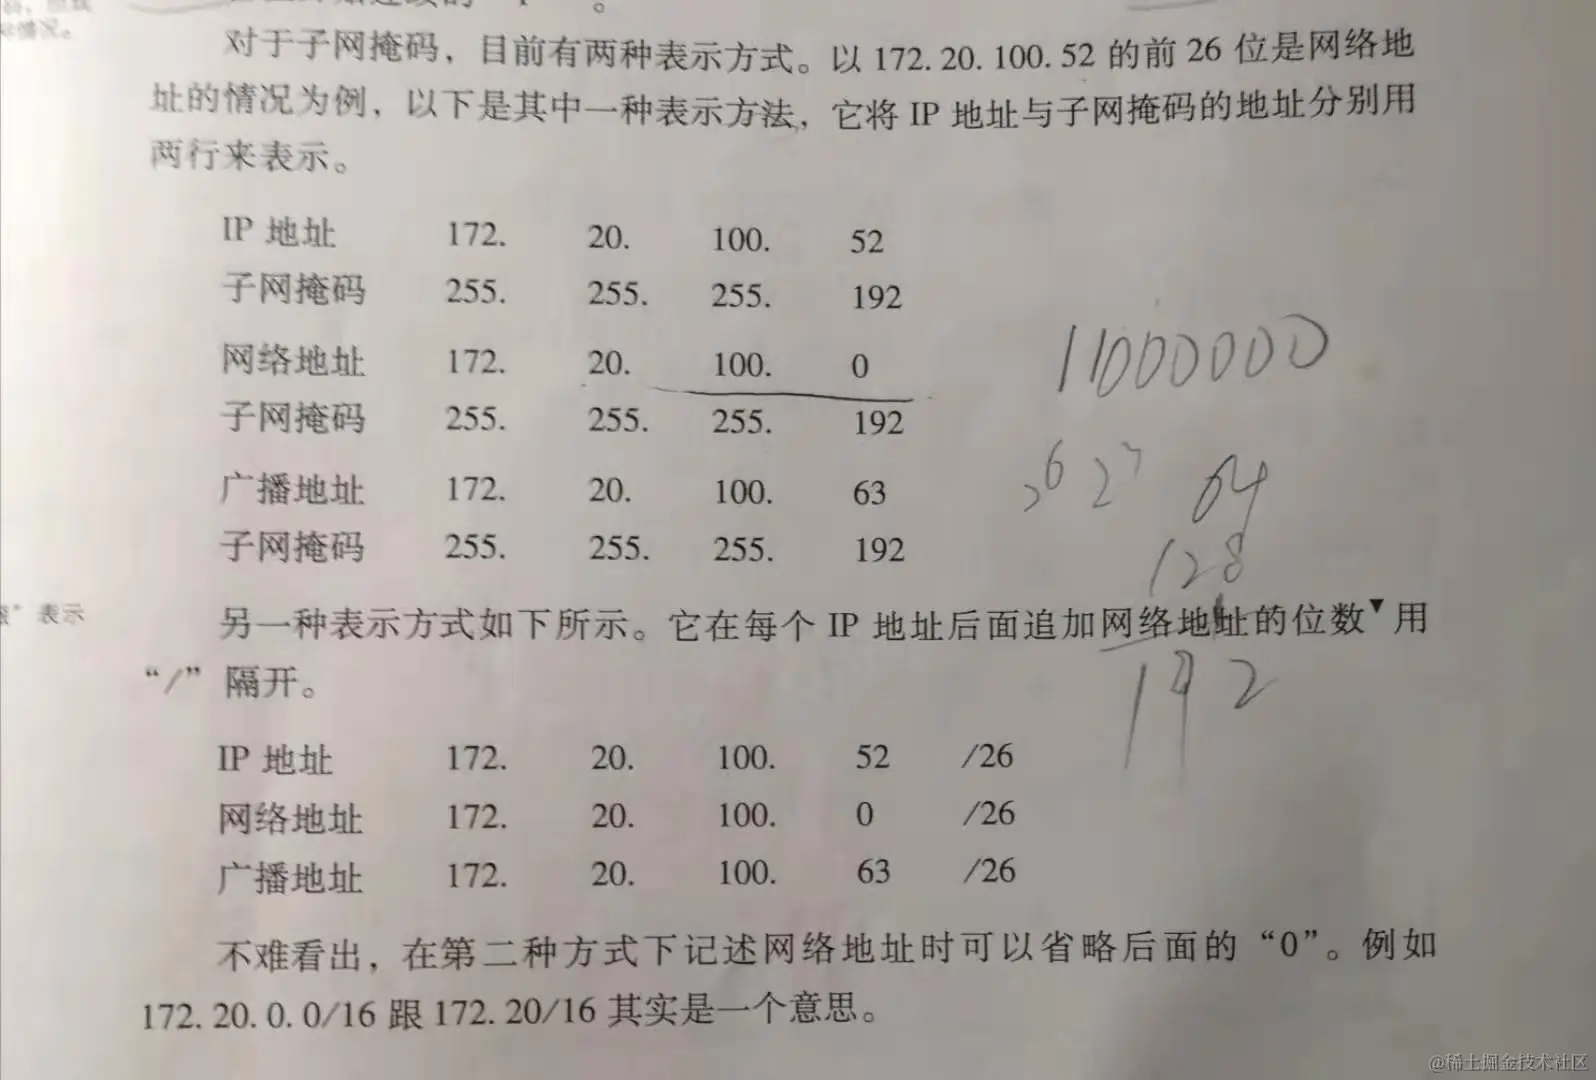 对于子网掩码，目前有两种表示方式。以 172. 20. 100. 52 的前 26 位是网络地
址的情况为例，以下是其中一种表示方法，它将 IP 地址与子网掩码的地址分别用
两行来表示。
IP 地址 172. 20. 100. 52
子网掩码 255. 255. 255. 192
网络地址 172. 20. 100. 0
子网掩码 255. 255. 255. 192
11000000
广播地址 172. 20. 100. 63
2⁶ 2⁷ 64
子网掩码 255. 255. 255. 192
128
表示
另一种表示方式如下所示。它在每个 IP 地址后面追加网络地址的位数▼用
“/” 隔开。
192
IP 地址 172. 20. 100. 52 /26
网络地址 172. 20. 100. 0 /26
广播地址 172. 20. 100. 63 /26
不难看出，在第二种方式下记述网络地址时可以省略后面的“0”。例如
172. 20. 0. 0/16 跟 172. 20/16 其实是一个意思。
@稀土掘金技术社区